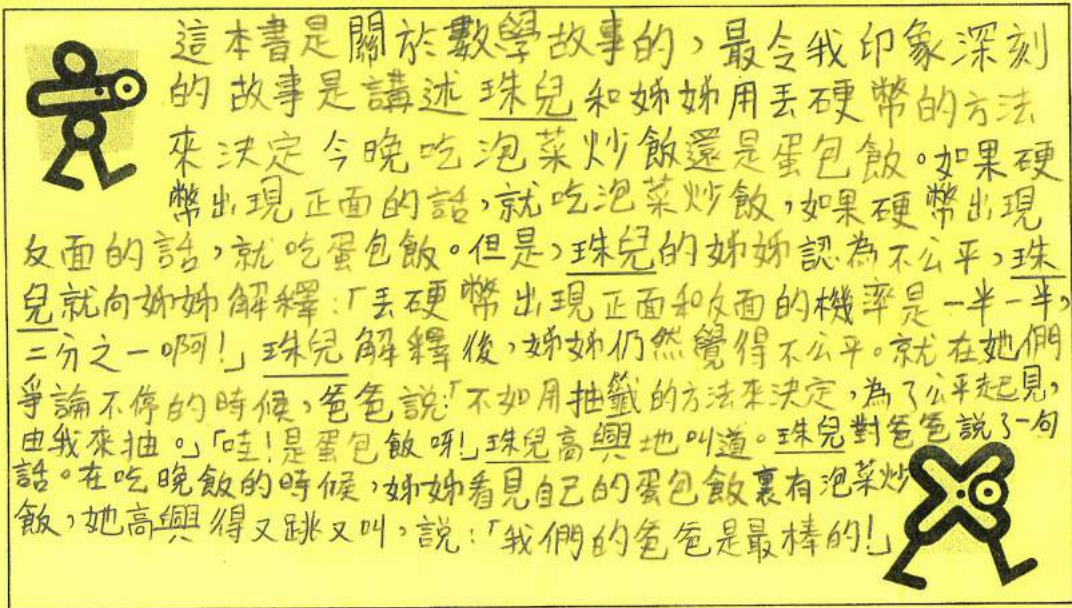 這本書是關於數學故事的，最令我印象深刻
的故事是講述珠兒和姊姊用丟硬幣的方法
來決定今晚吃泡菜炒飯還是蛋包飯。如果硬
幣出現正面的話，就吃泡菜炒飯，如果硬幣出現
反面的話，就吃蛋包飯。但是，珠兒的姊姊認為不公平，珠
兒就向姊姊解釋：「丟硬幣出現正面和反面的機率是一半一半，
二分之一啊！」珠兒解釋後，姊姊仍然覺得不公平。就在她們
爭論不停的時候，爸爸說：「不如用抽籤的方法來決定，為了公平起見，
由我來抽。」「哇！是蛋包飯呀！」珠兒高興地叫道。珠兒對爸爸說了一句
話。在吃晚飯的時候，姊姊看見自己的蛋包飯裏有泡菜炒
飯，她高興得又跳又叫，說：「我們的爸爸是最棒的！」